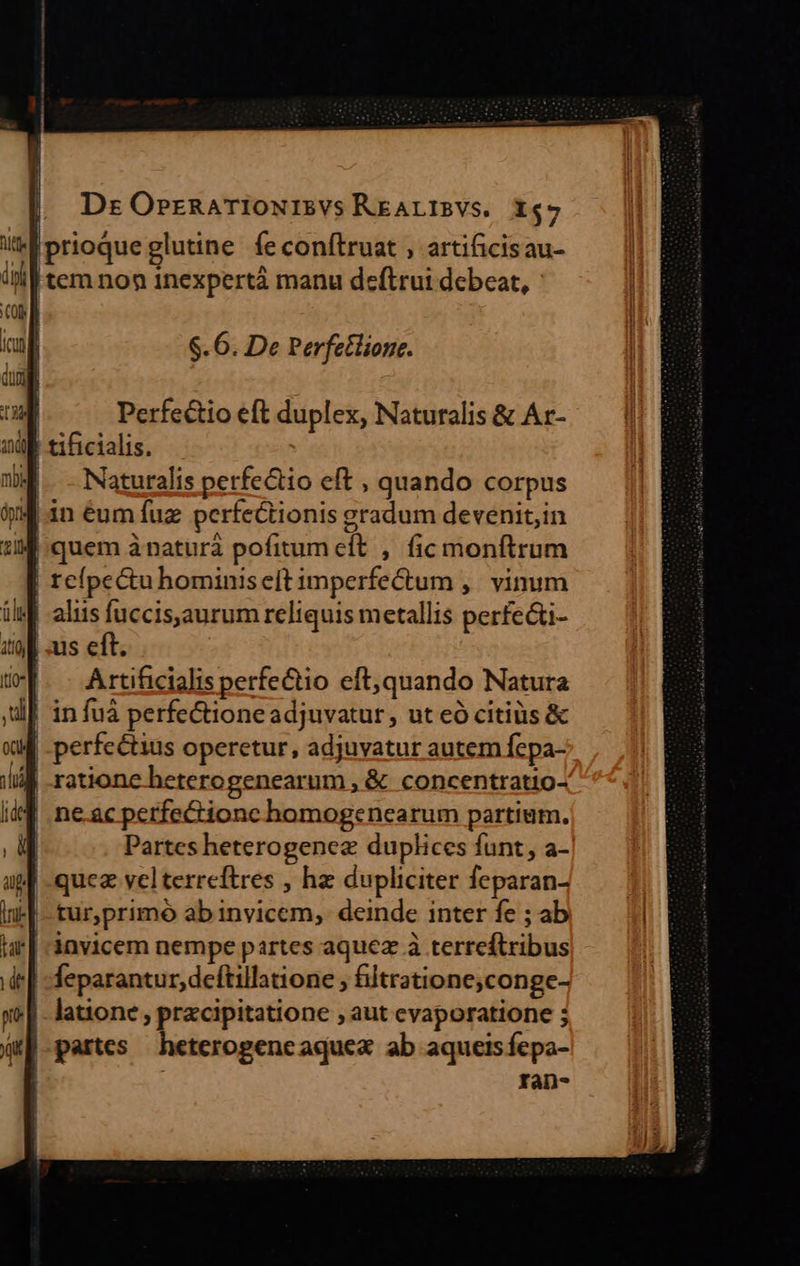 De Operationibvs Realibvs. 157
prioque glutine ſe conſtruat, artificis au-
tem non inexpertâ manu deſtrui debeat,
§. 6. De Perfectione.
Perfectio eſt duplex, Naturalis & Ar-
tificialis.
Naturalis perfectio eſt, quando corpus
in eum ſuæ perfectionis gradum devenit, in
quem à naturâ poſitum eſt, ſic monſtrum
reſpectu hominis eſt imperfectum, vinum
aliis ſuccis, aurum reliquis metallis perfecti-
us eſt.
Artificialis perfectio eſt, quando Natura
in ſuâ perfectione adjuvatur, ut eò citiùs &
perfectius operetur, adjuvatur autem ſepa-
ratione heterogenearum, & concentratio-
ne ac perfectione homogenearum partium.
Partes heterogeneæ duplices ſunt, a-
queæ vel terreſtres, hæ dupliciter ſeparan-
tur, primò ab invicem, deinde inter ſe; ab
invicem nempe partes aqueæ à terreſtribus
ſeparantur, deſtillatione, filtratione, conge-
latione, præcipitatione, aut evaporatione;
partes heterogeneaqueæ ab aqueis ſepa-
ran-